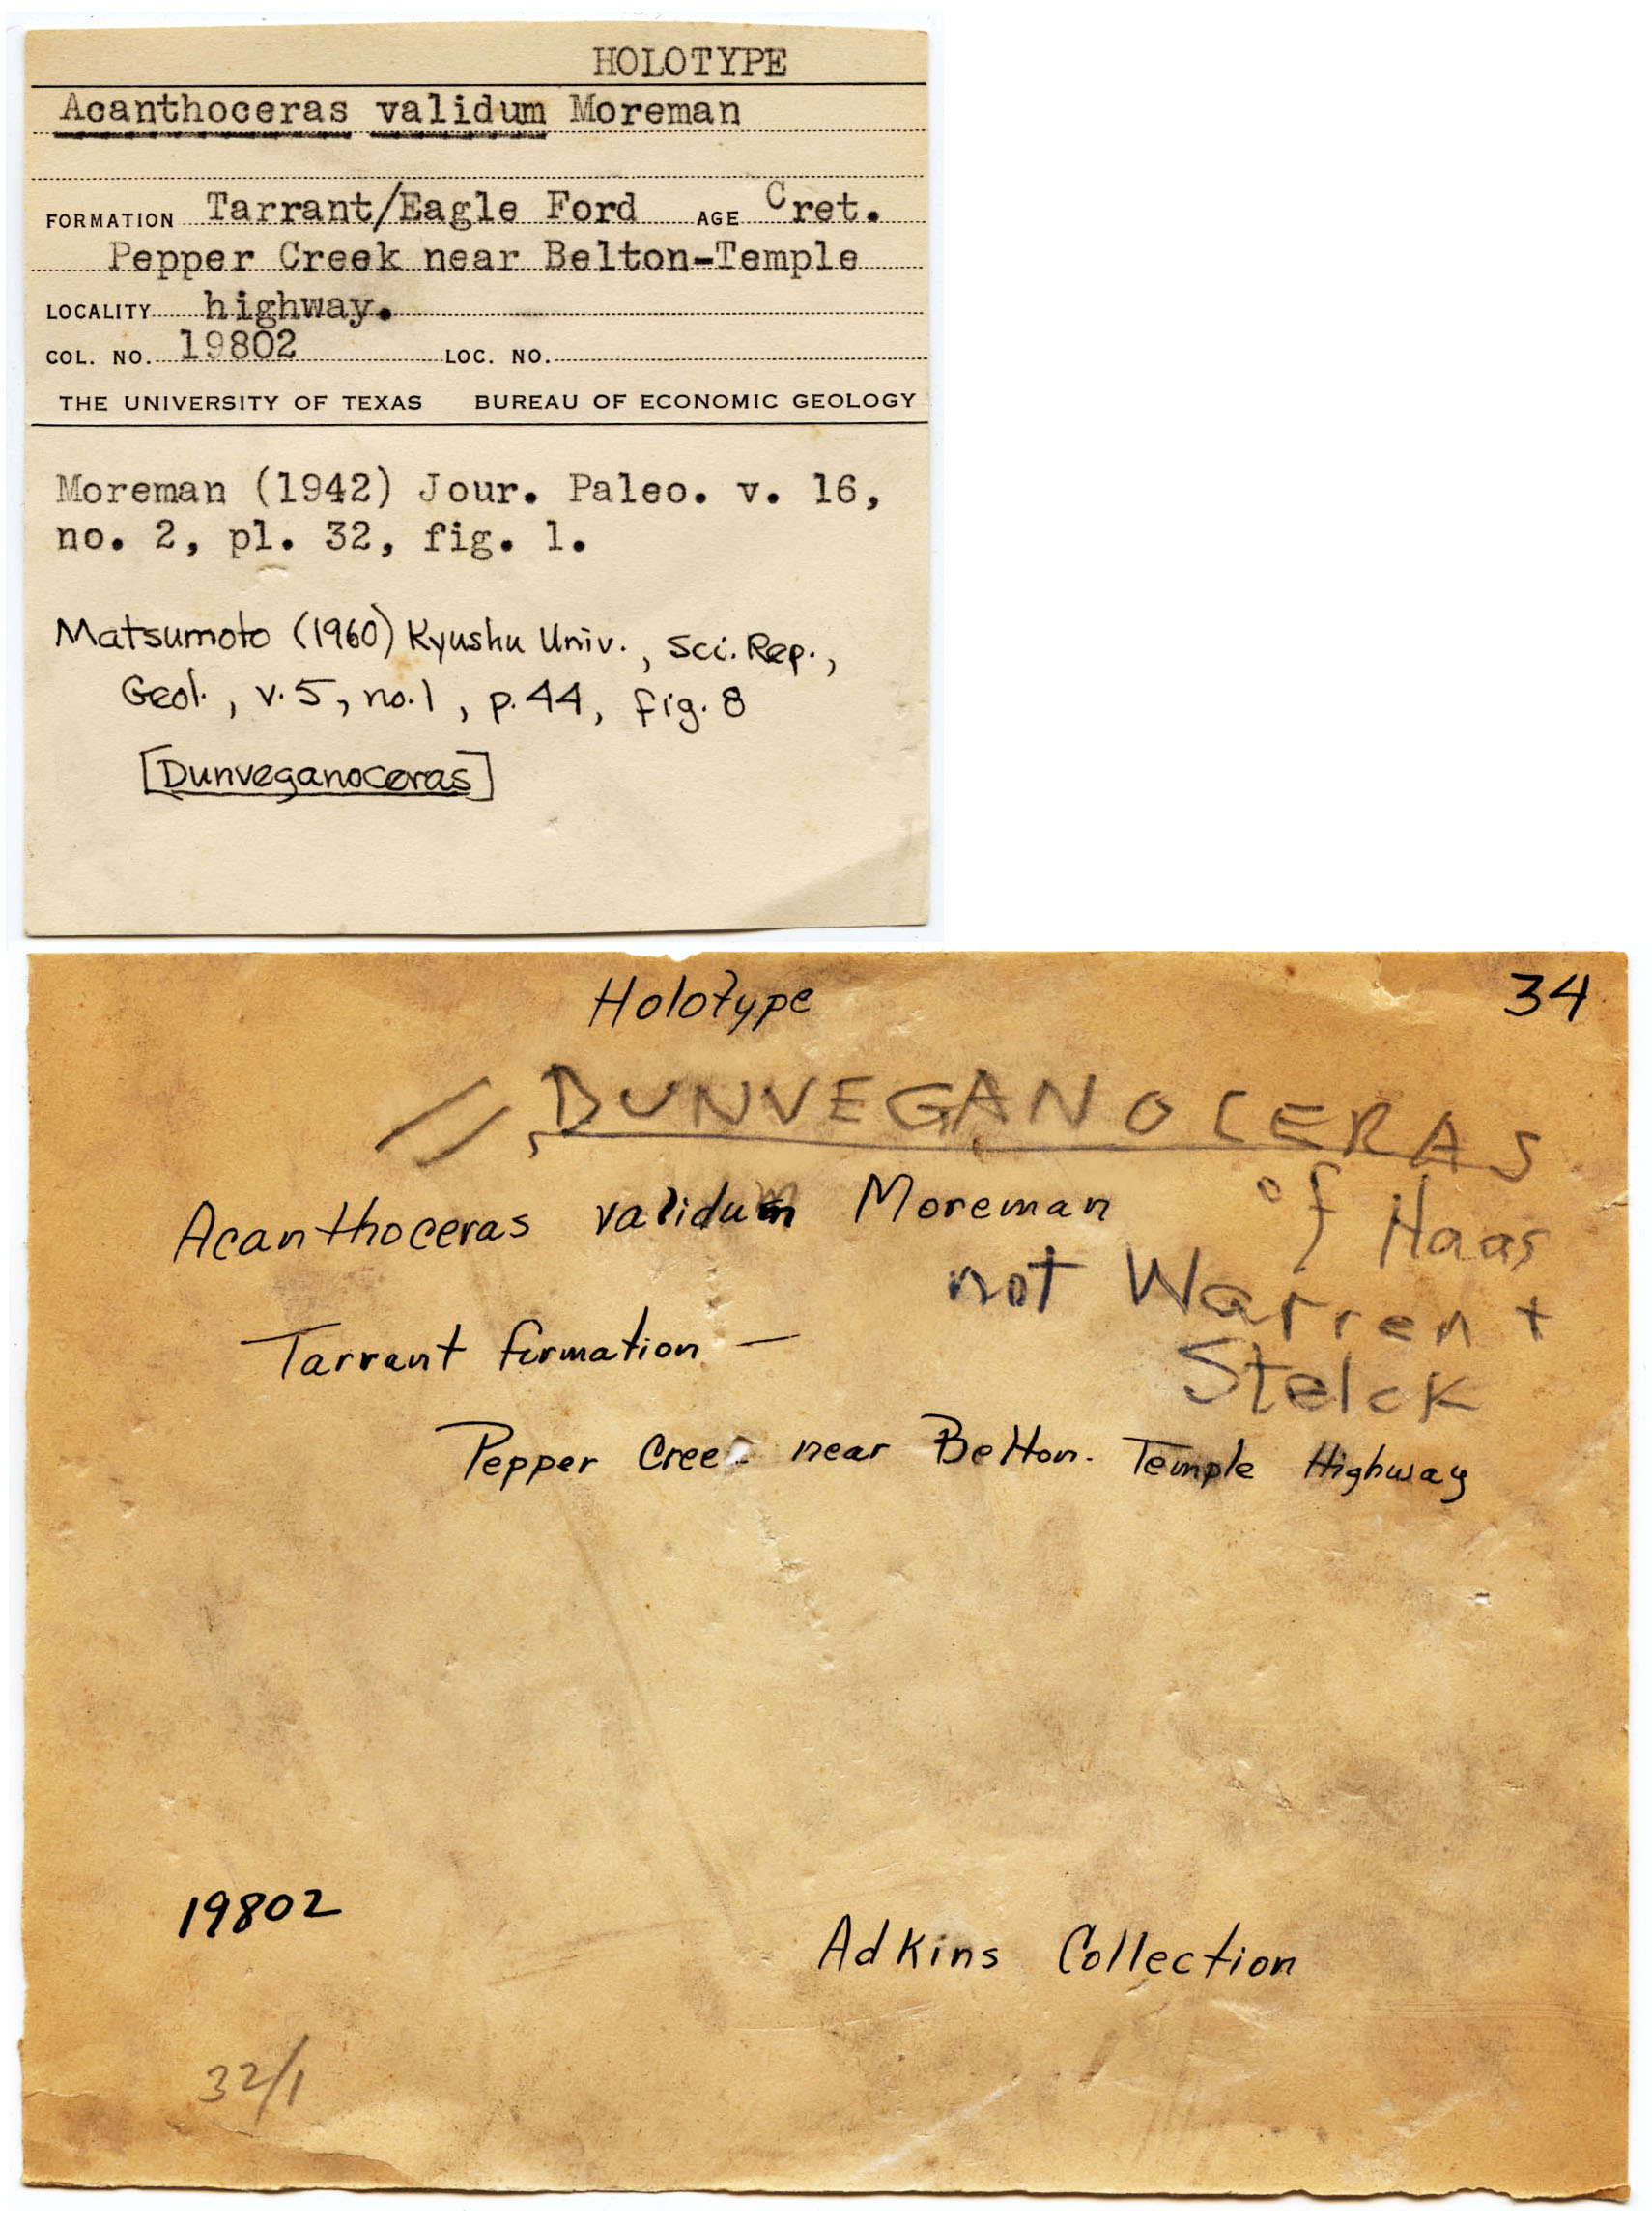 HOLOTYPE
Acanthoceras validum Moreman
FORMATION Tarrant/Eagle Ford AGE Cret.
Pepper Creek near Belton-Temple
LOCALITY highway.
COL. NO. 19802 LOC. NO.
THE UNIVERSITY OF TEXAS BUREAU OF ECONOMIC GEOLOGY
Moreman (1942) Jour. Paleo. v. 16,
no. 2, pl. 32, fig. 1.
Matsumoto (1960) Kyushu Univ., Sci. Rep.,
Geol., v. 5, no. 1, p. 44, fig. 8
[Dunveganoceras]
Holotype 34
DUNVEGANOCERAS
of Haas
Acanthoceras validum Moreman
not Warren +
Stelck
Tarrant formation —
Pepper Cree near Belton-Temple Highway
19802
Adkins Collection
32/1